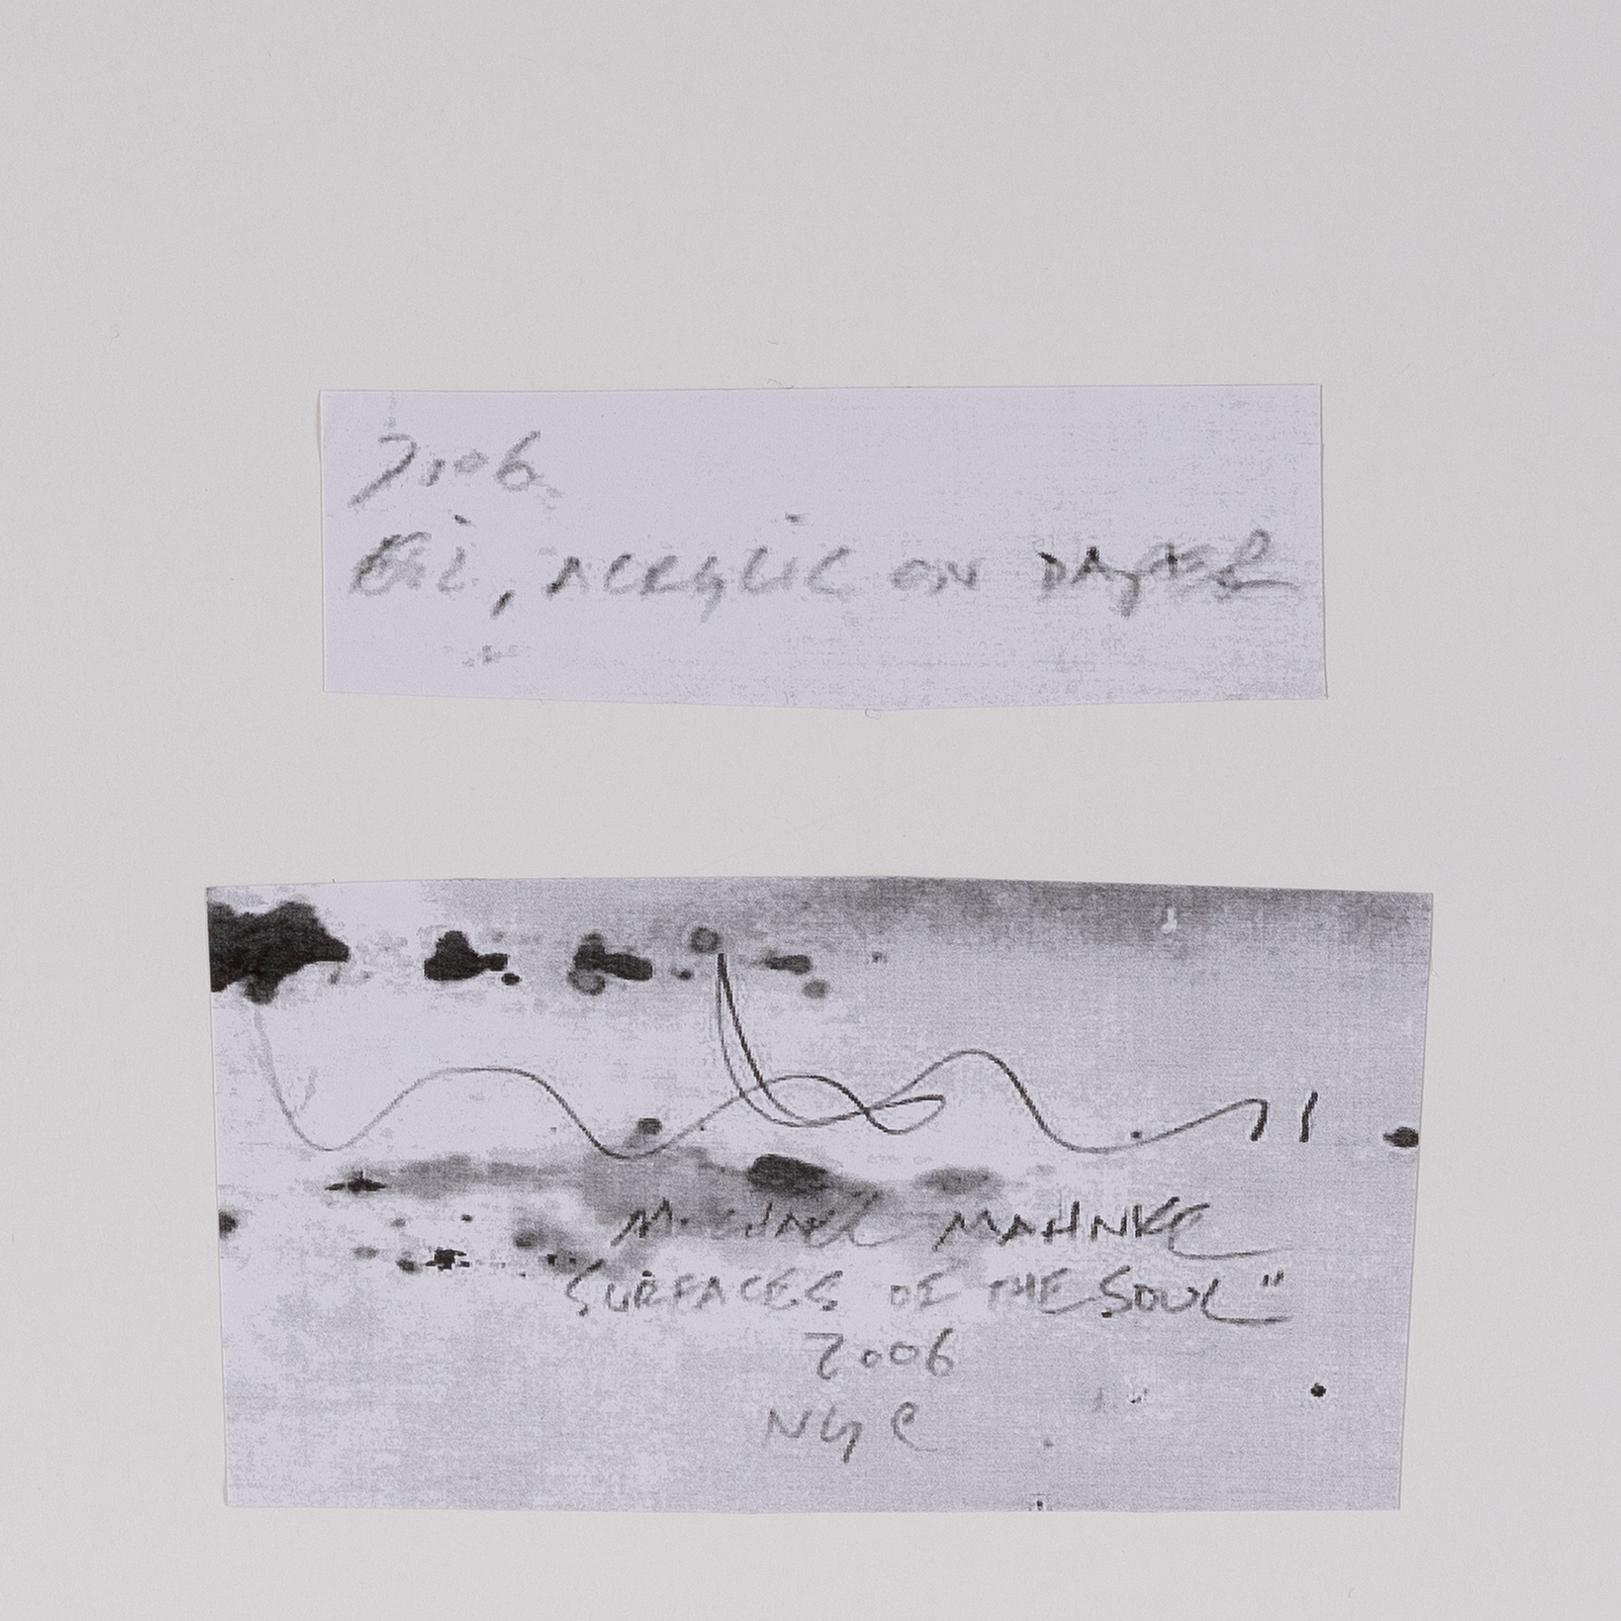 2006
Oil, ACRYLIC ON PAPER
MICHAEL MAHNKE
SURFACES OF THE SOUL"
2006
NYC